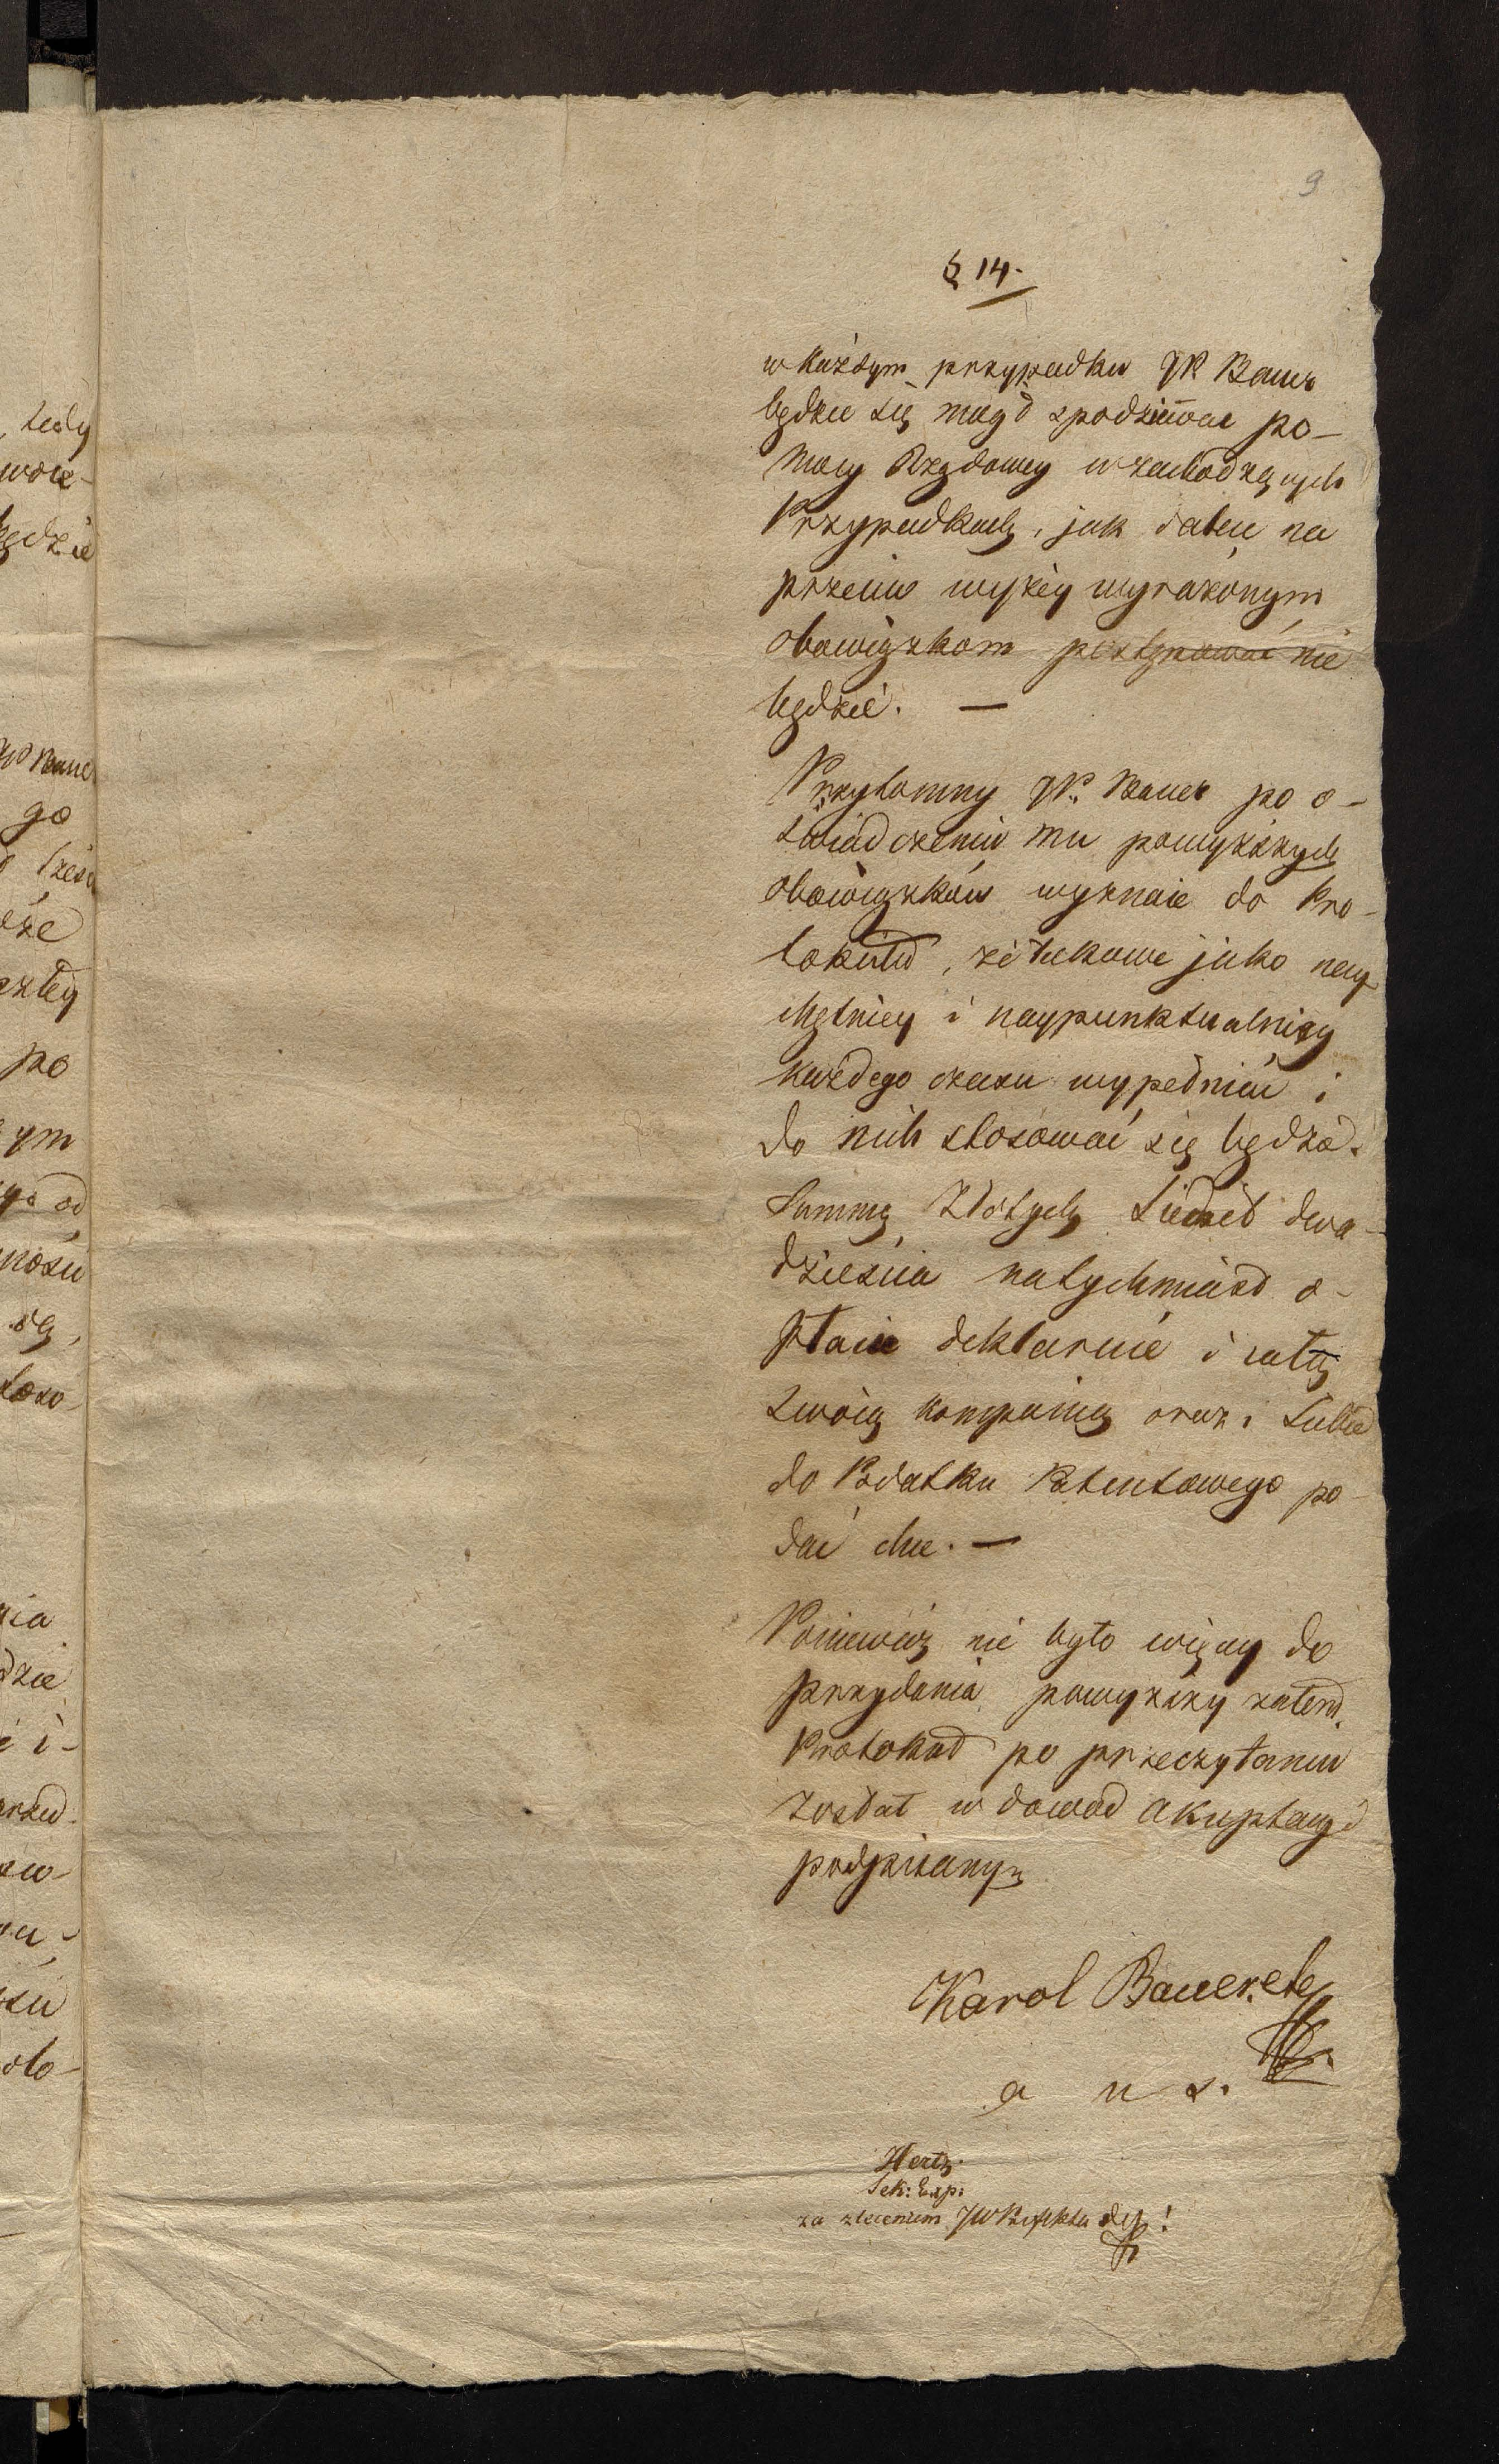 9
§ 14.
w każdym przypadku JP. Bauer
będzie się mógł spodziewać po-
mocy Rządowey w zachodzących
Przypadkach, jak dalece na
przeciw wyżey wyrażonym
obowiązkom postępować nie
będzie. —
Przytomny JP. Bauer po o-
świadczeniu mu powyższych
obowiązków wyznaie do Pro-
tokułu, że takowe jako nay-
chętniey i naypunktualniey
każdego czasu wypełniać i
do nich stosować się będzie.
Summę Złotych Siedm dwa-
dzieścia natychmiast o-
płacić deklaruie i całą
swoią kompanią oraz i siebie
do Podatku Patentowego po-
dać chce. —
Poniewóż nie było więcey do
przydania powyższy zatem
Protokuł po przeczytaniu
został w dowód akceptacyi
podpisany
Karol Bauer
a u s.
Hertz
Sek: Exp:
za zleceniem JW Prefekta
tedy
będzie
JP Bauer
go
po
ym
od